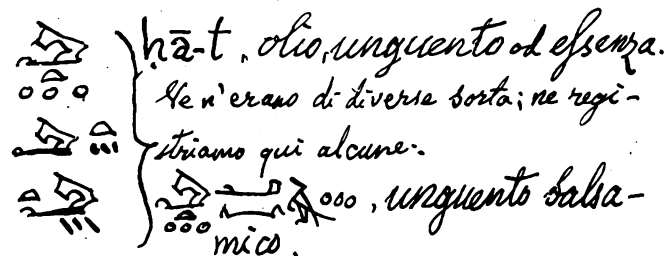 ḥā-t, olio, unguento od essenza.
Ve n'erano di diverse sorta; ne regi-
striamo qui alcune.
, unguento balsa-
mico.